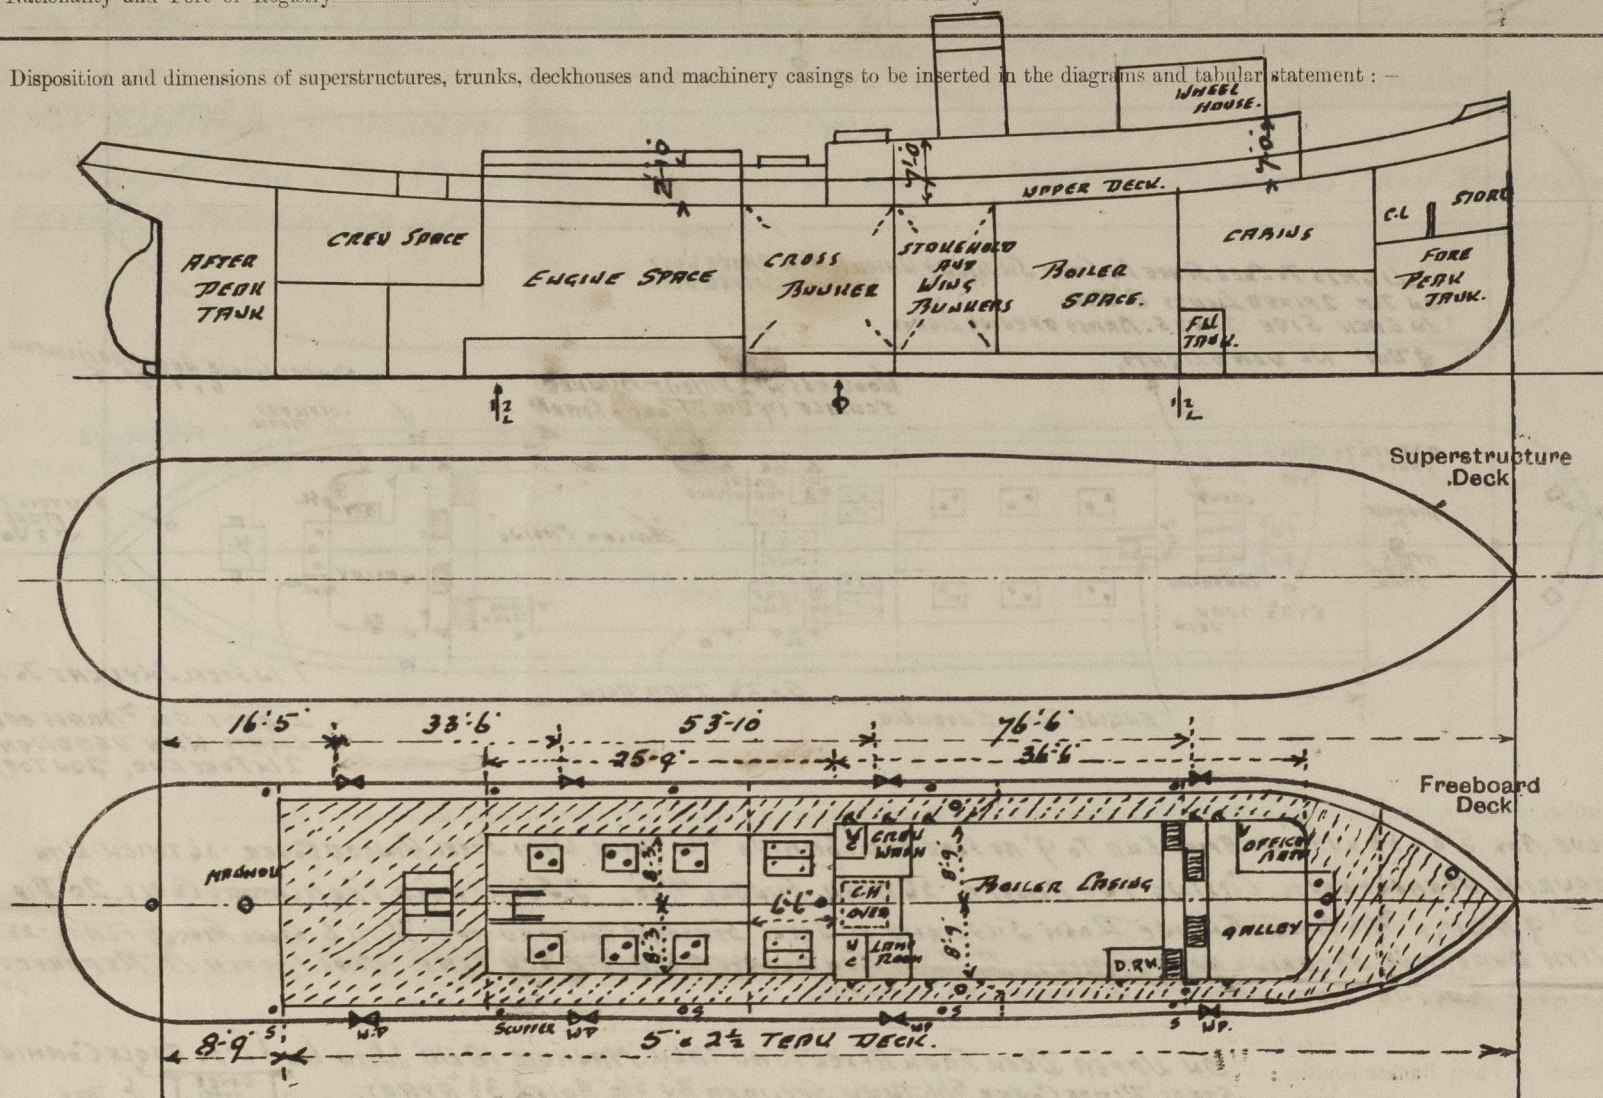 Nationality and Port of Registry
Disposition and dimensions of superstructures, trunks, deckhouses and machinery casings to be inserted in the diagrams and tabular statement : —
WHEEL
HOUSE.
2'-10"
7'-0"
7'-0"
UPPER DECK.
C.L
STORE
AFTER
PEAK
TANK
CREW SPACE
ENGINE SPACE
CROSS
BUNKER
STOKEHOLD
AND
WING
BUNKERS
BOILER
SPACE.
CABINS
FORE
PEAK
TANK.
F.W
TANK.
½
L
½
L
Superstructure
Deck
16'-5"
33'-6"
53'-10"
76'-6"
25-9"
36'-6"
Freeboard
Deck
MANHOLE
8'-3"
8'-3"
6'-6"
W
C
CREW
WASH
CH
OVER
W
C
LAMP
ROOM
8'-9"
8'-9"
BOILER CASING
D.RM.
W
OFFICERS
BATH
GALLEY
S
W.P
SCUPPER
WP
S
WP
S
S
WP.
8'-9"
5" × 2½ TEAK DECK.